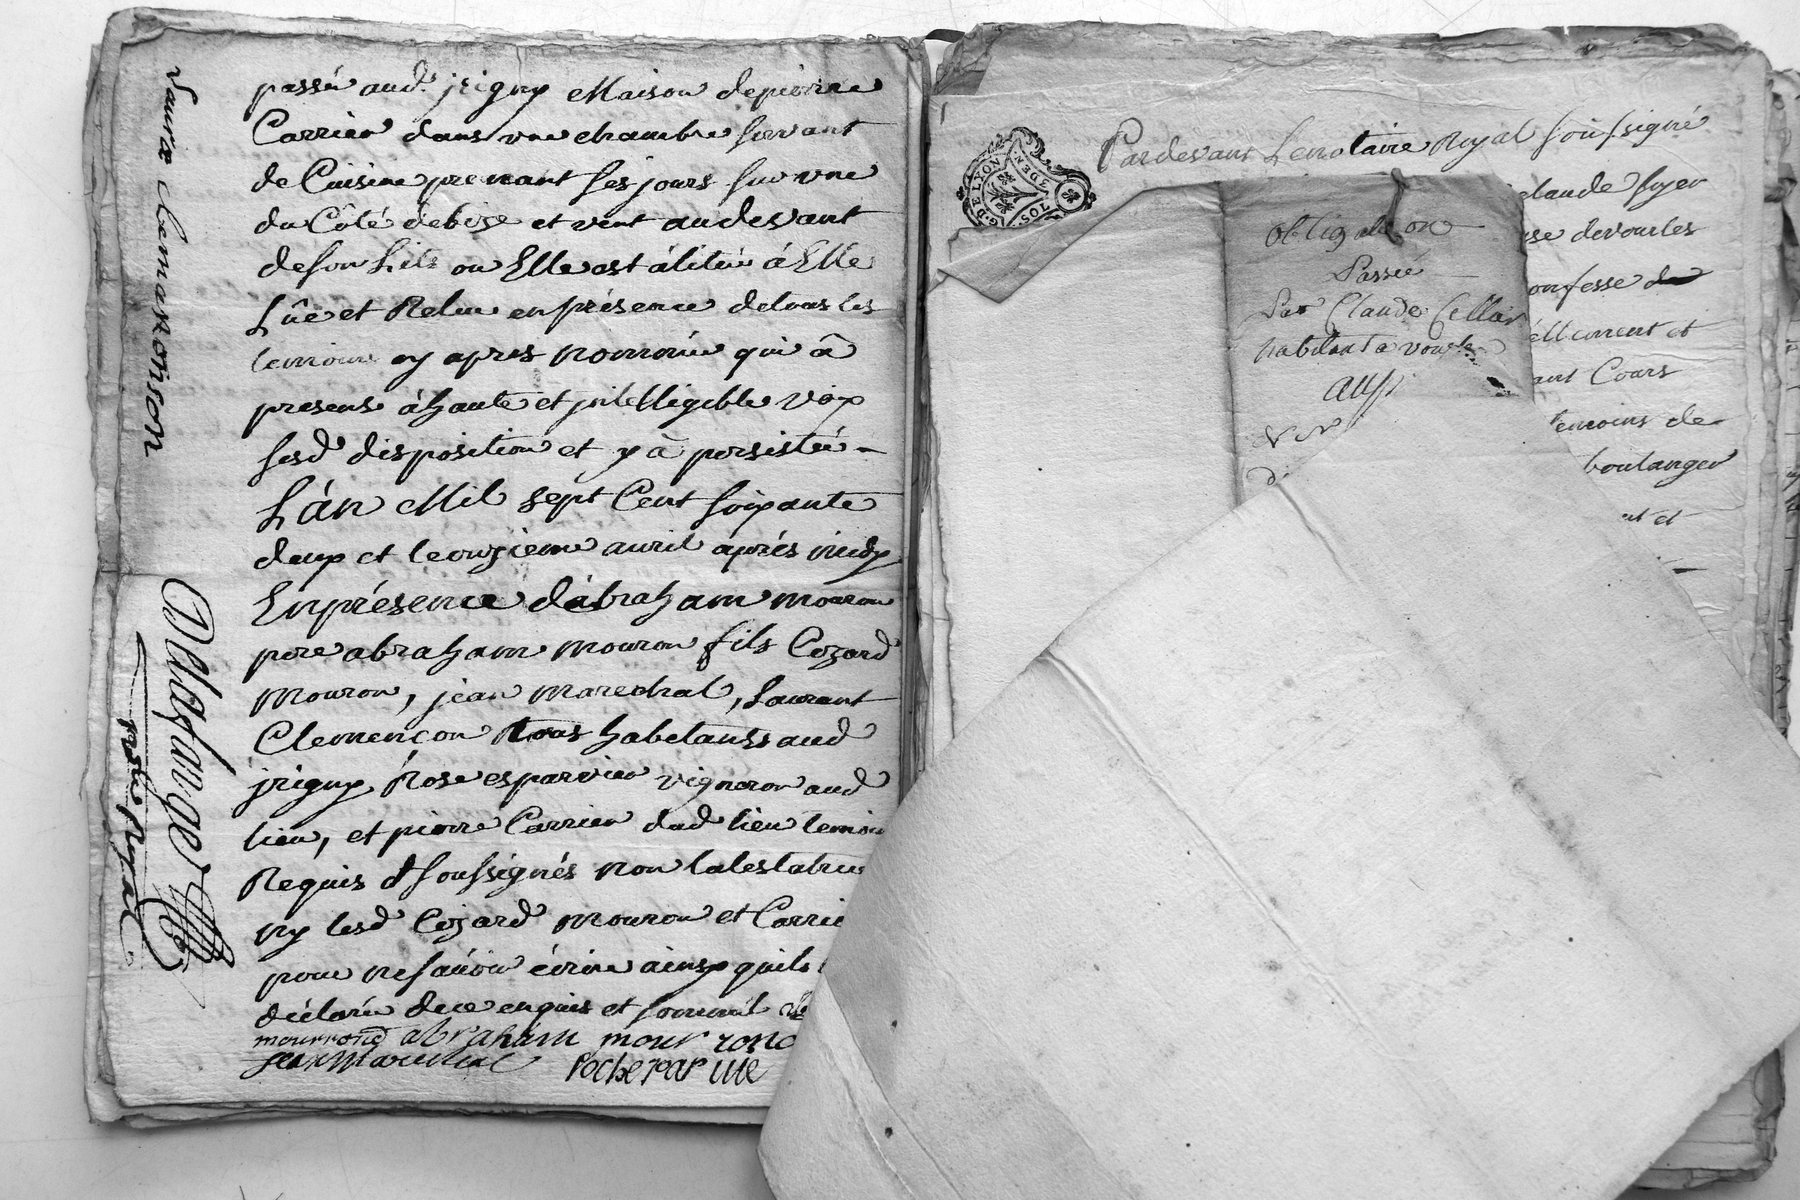 passé aud. jrigny Maison depierre
Carrier dans vne chambre servant
de Cuisine prenant ses jours sur vne
du Côté debize et vent audevant
deson Lit ou Elle est âlitée â Elle
Lûe et Relue enprésence detous les
temoins cy apres nommés qui â
presens âhaute et jntelligible voix
sesd disposition et y â persisté
L'àn Mil sept Cent soixante
deux et leonzieme auril aprés midy
Enprésence d'àbraham mouron
pere abraham mouron fils Cezard
Mouron, jean marechal, Laurant
Clemencon tous habitants aud
jrigny, Rose esparvier vigneron aud
lieu, et pierre Carrier dud lieu temoin
Requis & soussignés non latestatrice
ny lesd Cezard mouron et Carrie
pour nesauoir écrire ainsy quils
déclaré dece enquis et sommé
mourrond abraham mour rond
jean marechal Rocheparvie
Lauran Clemanson
Delaflange
notre Royal
G. DE LYON
SOLS
Pardevant Lenotaire Royal soussigné
claude
devourles
confesse de
ellement et
ant Cours
temoins de
boulanger
et
obligation
Passée
Par Claude Cellar
habitant a vourle